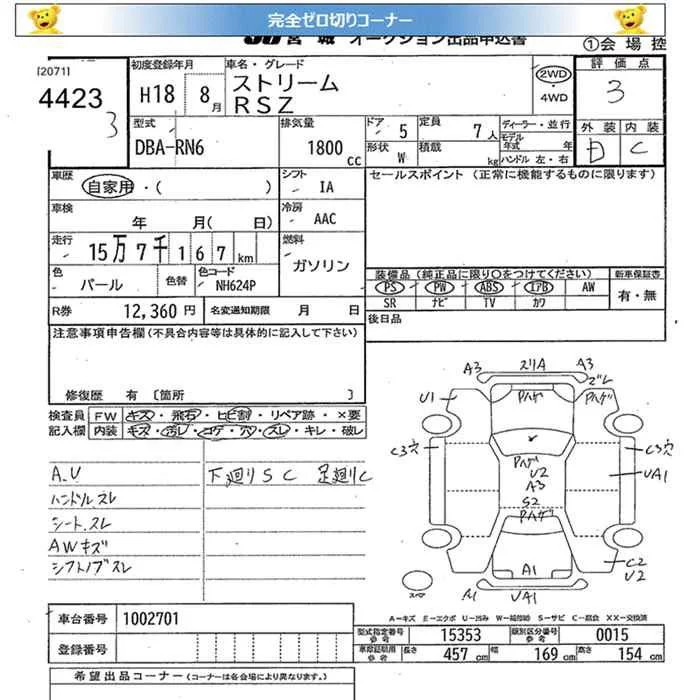 完全ゼロ切りコーナー
JU宮城 オークション出品申込書
①会場控
[2071]
4423
3
初度登録年月
H18 8月
車名・グレード
ストリーム
RSZ
2WD
4WD
評価点
3
外装 内装
D C
型式
DBA-RN6
排気量
1800 cc
ドア 5
形状 W
定員 7人
積載 kg
ディーラー・並行
モデル
年式 年
ハンドル 左・右
車歴
自家用・( )
シフト
IA
セールスポイント (正常に機能するものに限ります)
車検
年 月( 日)
冷房
AAC
走行
15万7千167km
燃料
ガソリン
色
パール
色替
色コード
NH624P
装備品(純正品に限り○をつけてください)
新車保証書
PS PW ABS エアB AW
有・無
SR ナビ TV カワ
R券 12,360円
名変通知期限 月 日
後日品
注意事項申告欄(不具合内容等は具体的に記入して下さい)
修復歴 有 〔箇所 〕
検査員
記入欄
FW キズ・飛石・ヒビ割・リペア跡・×要
内装 キズ・汚レ・コゲ・穴・スレ・キレ・破レ
A.U
下廻りSC 足廻りC
ハンドル.スレ
シート.スレ
AWキズ
シフトノブスレ
A3 スリA A3
ズレ
U1 Pハゲ Pハゲ
C3穴 C3穴
Pハゲ
U2
A3
UA1
S2
Pハゲ
A1
C2
U2
スペア
UA1
A-キズ E-エクボ U-凹み W-補修跡 S-サビ C-腐食 XX-交換済
車台番号 1002701
登録番号
型式指定番号
参考
15353
類別区分番号
参考
0015
車庫証明用
参考
長さ 457cm
幅 169cm
高さ 154cm
希望出品コーナー (コーナーは各会場により異なります。)